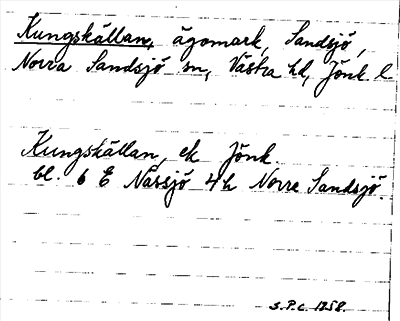 Kungskällan, ägomark, Sandsjö,
Norra Sandsjö sn, Västra hd, Jönk l
Kungskällan, ek Jönk.
bl. 6 E Nässjö 4h Norra Sandsjö.
S.P.C. 1958.